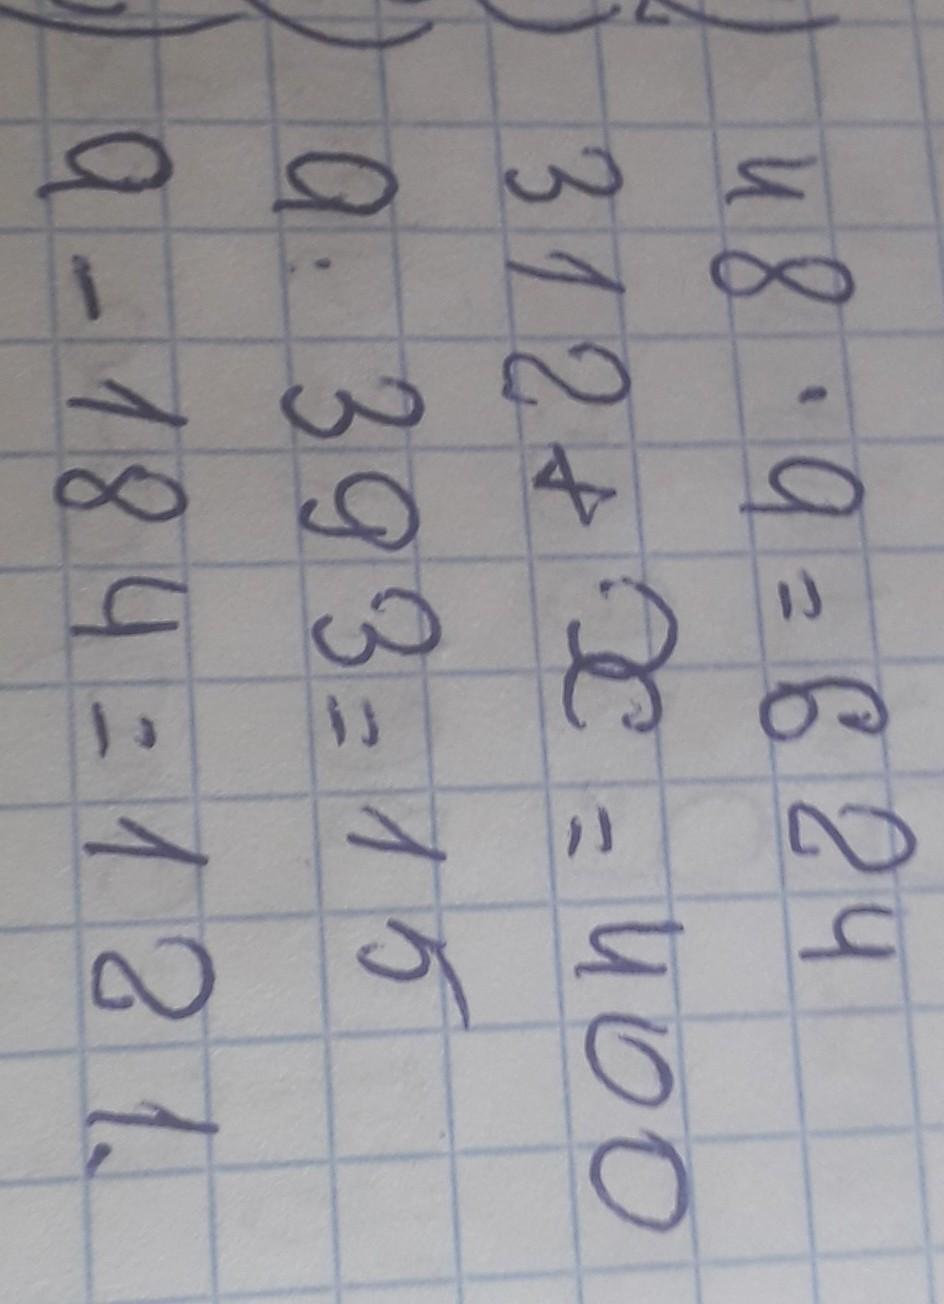 48 · a = 624
312 + x = 400
a : 393 = 15
a - 184 = 121.